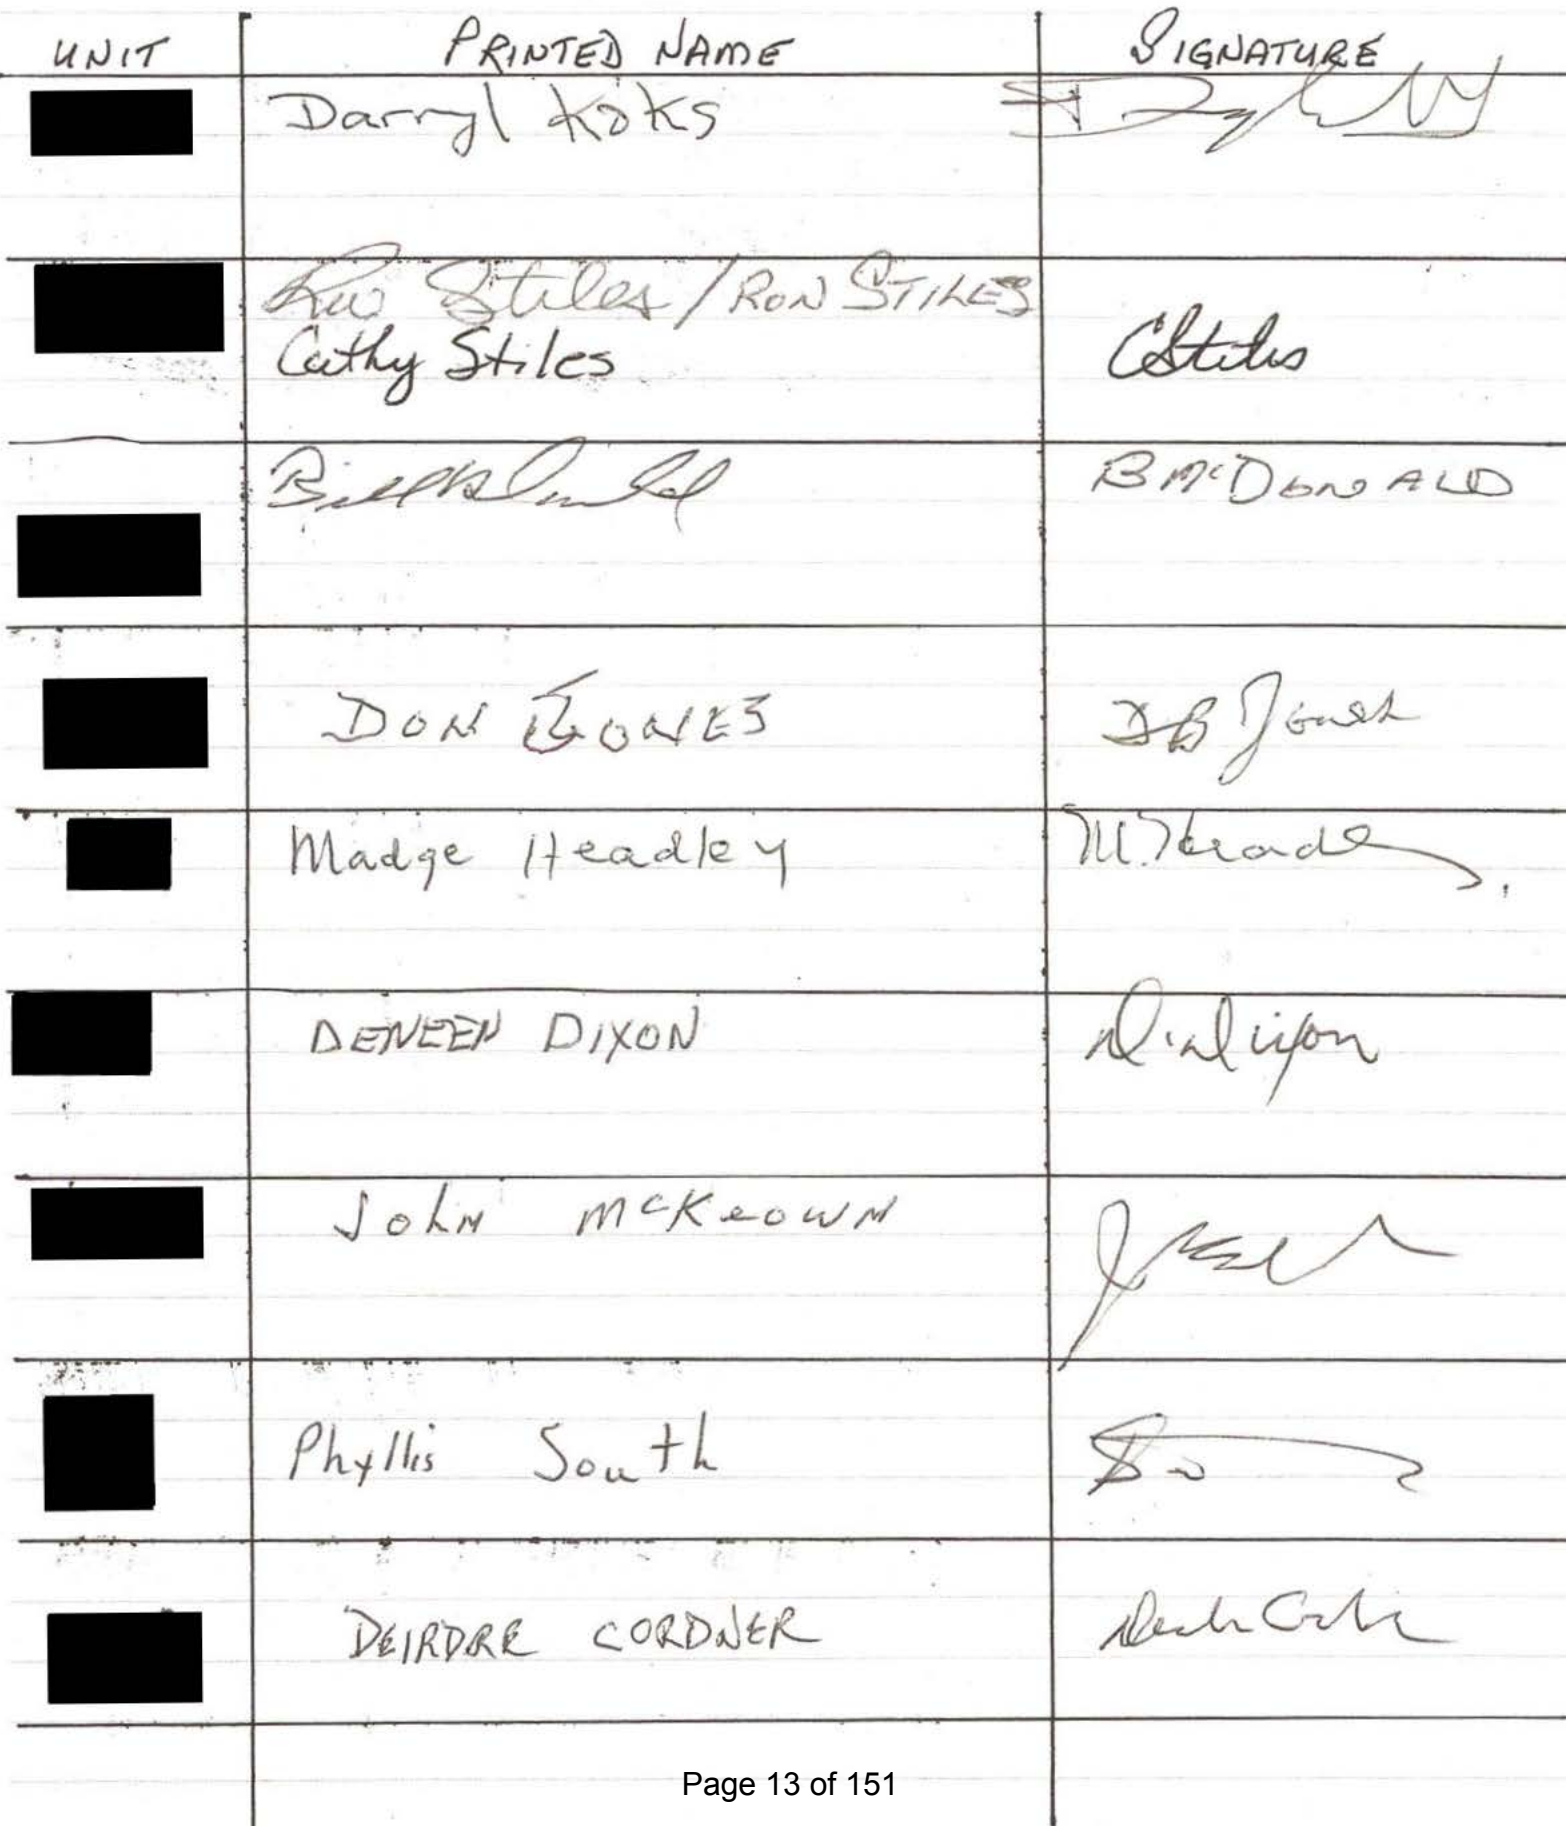 UNIT PRINTED NAME SIGNATURE
Darryl Koks
Ron Stiles / RON STILES
Cathy Stiles CStiles
Bill McDonald B McDONALD
DON JONES DB Jones
Madge Headley M. Headley
DENEEN DIXON D. Dixon
John McKeown
Phyllis South
DEIRDRE CORDNER
Page 13 of 151